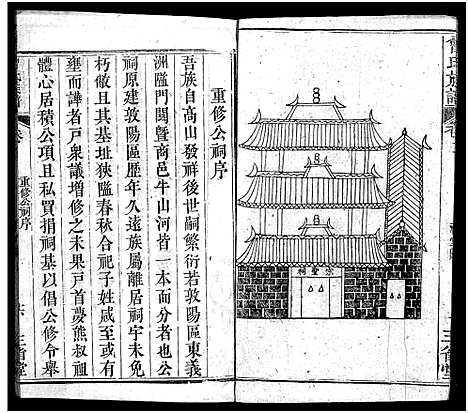 曾氏族譜
宗聖祠
三省堂
重修公祠序
吾族自高山發祥後世嗣繁衍若敦陽區東義
洲隘門閩暨商邑牛山河皆一本而分者也公
祠原建敦陽區歷年久遠族屬離居祠宇未免
朽敝且其基址狹隘春秋合祀子姓咸至或有
壅而譁者戶衆議增修之未果戶首夢熊叔祖
體心居積公項且私買捐祠基以倡公修令舉
重修公祠序
六
三省堂